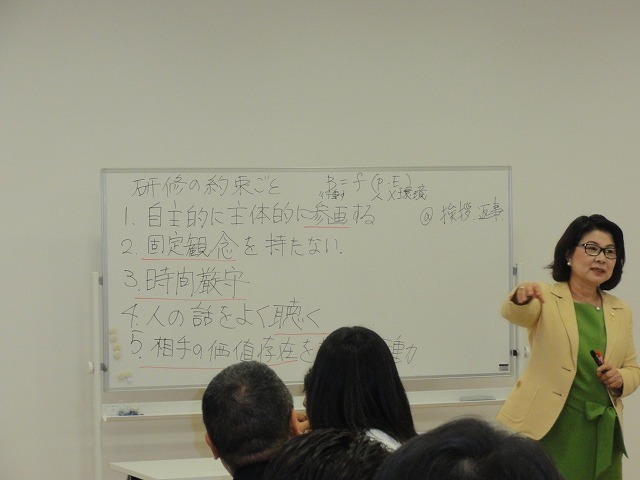 研修の約束ごと
B = f (P・E)
行動 人×環境
1. 自主的に主体的に参画する
@ 挨拶・返事
2. 固定観念を持たない.
3. 時間厳守
4. 人の話をよく聴く
5. 相手の価値存在を 動